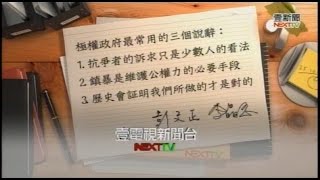 壹新聞
NEXTTV
極權政府最常用的三個說辭:
1. 抗爭者的訴求只是少數人的看法
2. 鎮暴是維護公權力的必要手段
3. 歷史會証明我們所做的才是對的
壹電視新聞台
NEXTTV